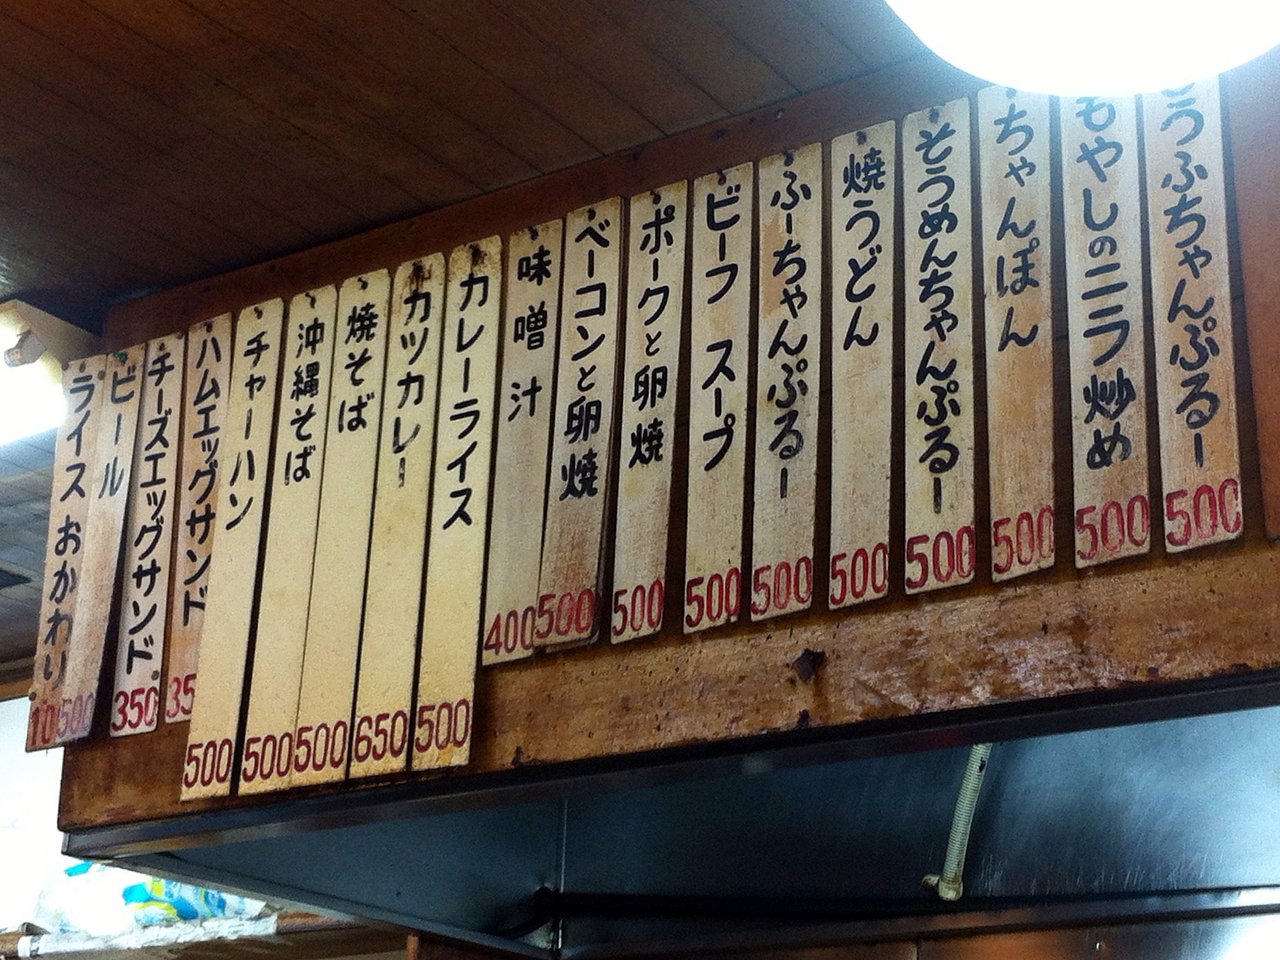 とうふちゃんぷるー 500
もやしのニラ炒め 500
ちゃんぽん 500
そうめんちゃんぷるー 500
焼うどん 500
ふーちゃんぷるー 500
ビーフスープ 500
ポークと卵焼 500
ベーコンと卵焼 500
味噌汁 400
カレーライス 500
カツカレー 650
焼そば 500
沖縄そば 500
チャーハン 500
ハムエッグサンド 35
チーズエッグサンド 350
ビール 500
ライスおかわり 10